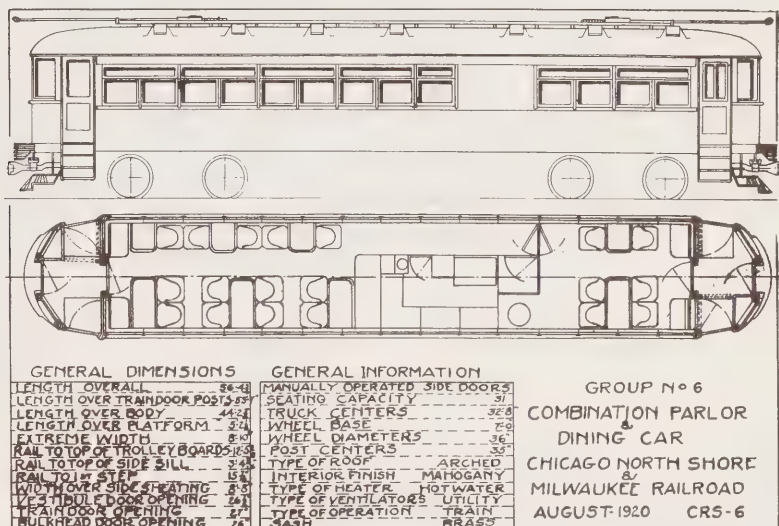 GENERAL DIMENSIONS
LENGTH OVERALL
LENGTH OVER TRAINDOOR POSTS
LENGTH OVER BODY
LENGTH OVER PLATFORM
EXTREME WIDTH
RAIL TO TOP OF TROLLEY BOARDS
RAIL TO TOP OF SIDE SILL
RAIL TO 1ST STEP
WIDTH OVER SIDE SHEATING
VESTIBULE DOOR OPENING
TRAIN DOOR OPENING
BULKHEAD DOOR OPENING
GENERAL INFORMATION
MANUALLY OPERATED SIDE DOORS
SEATING CAPACITY 31
TRUCK CENTERS
WHEEL BASE
WHEEL DIAMETERS 36"
POST CENTERS 35"
TYPE OF ROOF ARCHED
INTERIOR FINISH MAHOGANY
TYPE OF HEATER HOT WATER
TYPE OF VENTILATORS UTILITY
TYPE OF OPERATION TRAIN
SASH BRASS
GROUP No 6
COMBINATION PARLOR
&
DINING CAR
CHICAGO NORTH SHORE
&
MILWAUKEE RAILROAD
AUGUST-1920 CRS-6